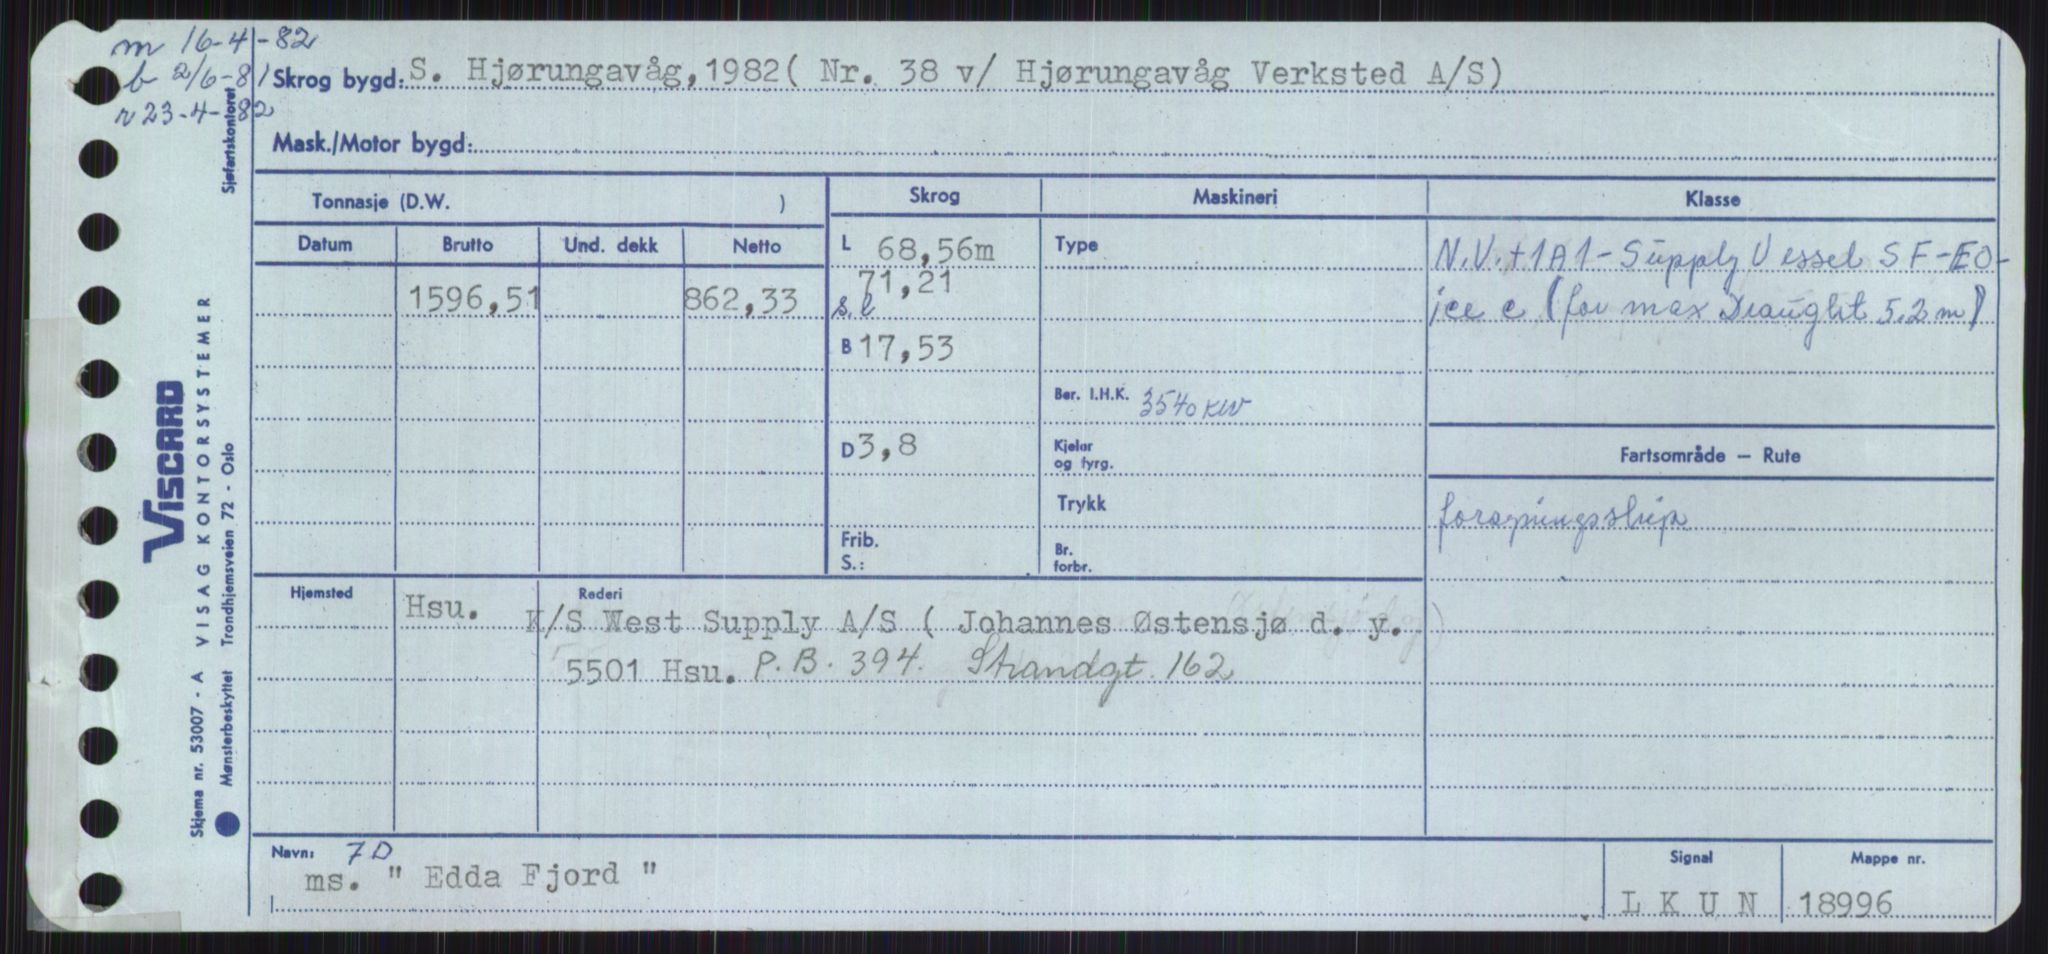 m 16-4-82
b 2/6-81
r 23-4-82
Skrog bygd: S. Hjørungavåg, 1982( Nr. 38 v/ Hjørungavåg Verksted A/S)
Mask./Motor bygd:
Sjøfartskontoret
Tonnasje (D.W. )
Skrog
Maskineri
Klasse
Datum
Brutto
Und. dekk
Netto
1596,51
862,33
L 68,56m
71,21
s.l
B 17,53
D 3,8
Frib.
S.:
Type
Ber. I.H.K. 3540 KW
Kjelar
og fyrg.
Trykk
Br.
forbr.
N.V. +1A1-Supply Vessel SF-EO-
ice c (for max Draught 5.2 m)
Fartsområde — Rute
forsyningsskip
Hjemsted
Rederi
Hsu.
K/S West Supply A/S ( Johannes Østensjø d. y. )
5501 Hsu. P.B. 394. Strandgt. 162
Navn: 7D
ms. " Edda Fjord "
Signal
L K U N
Mappe nr.
18996
VISCARD
VISAG KONTORSYSTEMER
Skjema nr. 53007 - A
Mønsterbeskyttet Trondhjemsveien 72 - Oslo